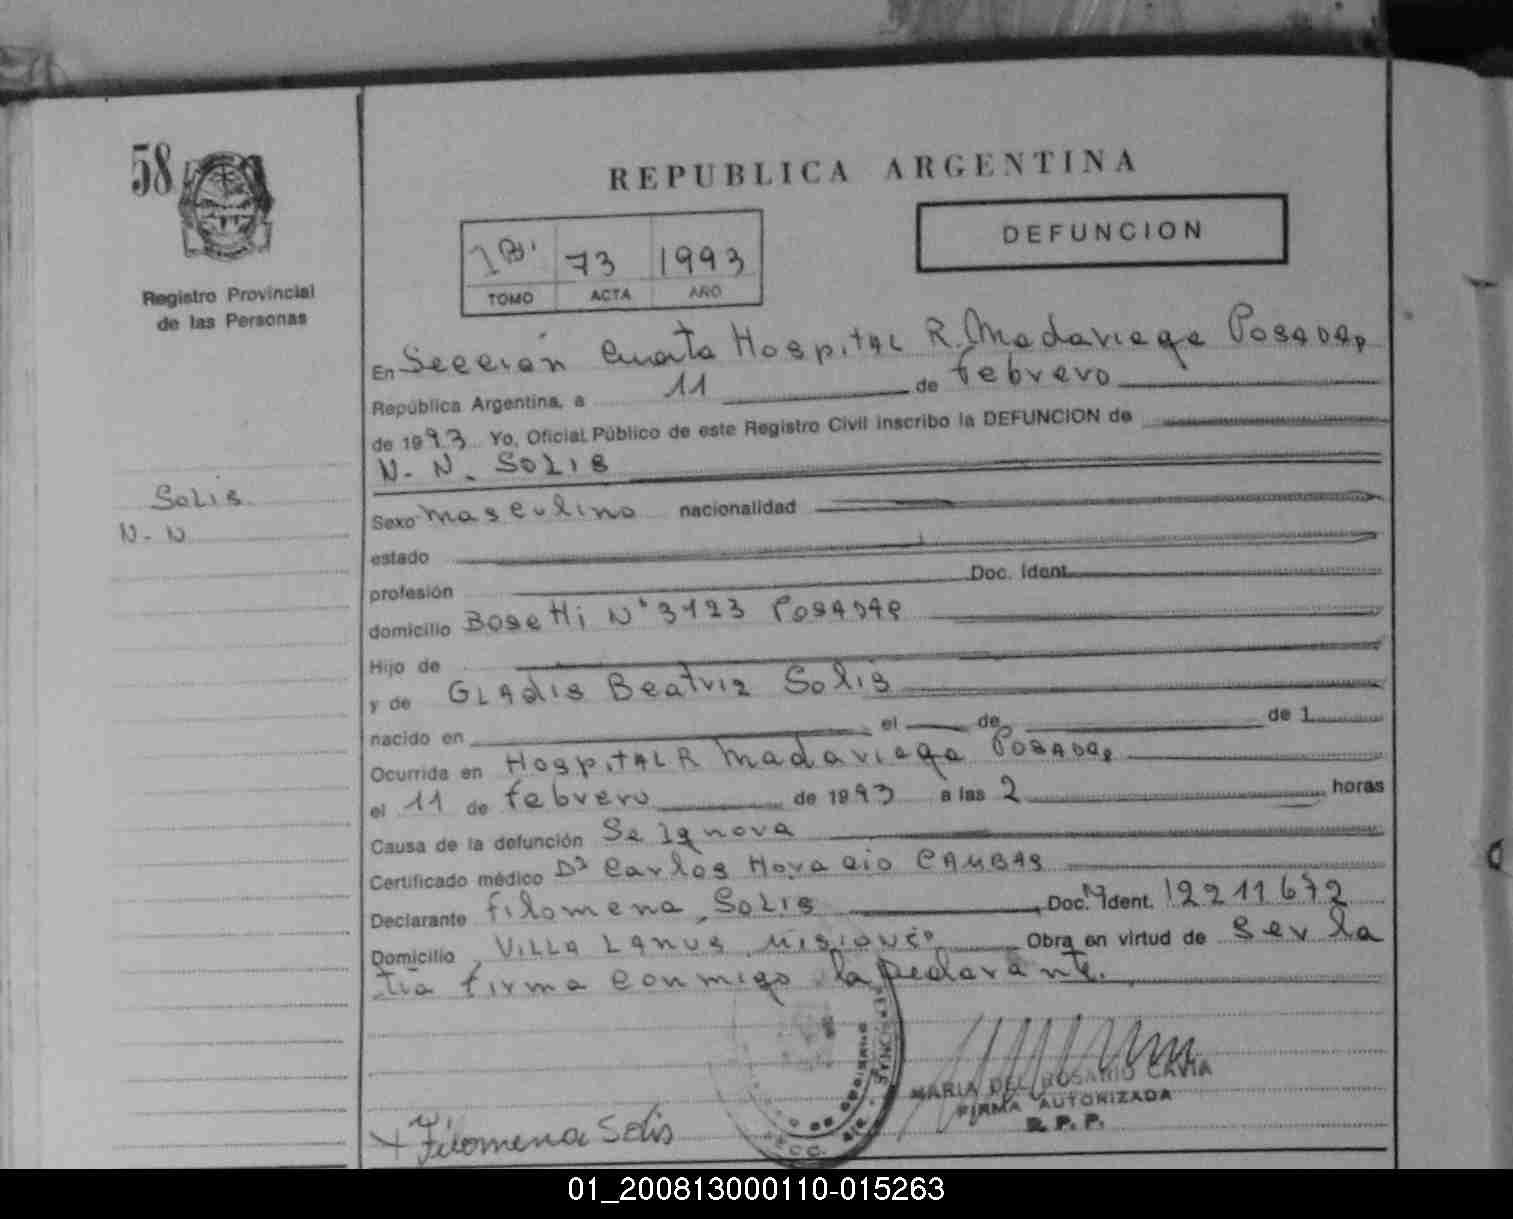 58
REPUBLICA ARGENTINA
DEFUNCION
73 1993
TOMO ACTA AÑO
Registro Provincial
de las Personas
En Sección Cuarta Hospital R. Madariaga Posadas
República Argentina, a 11 de febrero
de 1993 Yo, Oficial Público de este Registro Civil inscribo la DEFUNCION de
N. N. SOLIS
SOLIS
N. N
Sexo masculino nacionalidad
estado
profesión Doc. Ident.
domicilio Bosetti N° 3123 Posadas
Hijo de
y de Gladis Beatriz Solis
nacido en el de de 1
Ocurrida en Hospital R Madariaga Posadas
el 11 de febrero de 1993 a las 2 horas
Causa de la defunción Se Ignora
Certificado médico Dr Carlos Horacio CAMBAS
Declarante Filomena Solis Doc. Ident. 12211672
Domicilio Villa Lanús Misiones Obra en virtud de Ser la
tía firma conmigo la declarante.
MARIA DEL ROSARIO CAVIA
FIRMA AUTORIZADA
R. P. P.
Filomena Solis
01_200813000110-015263